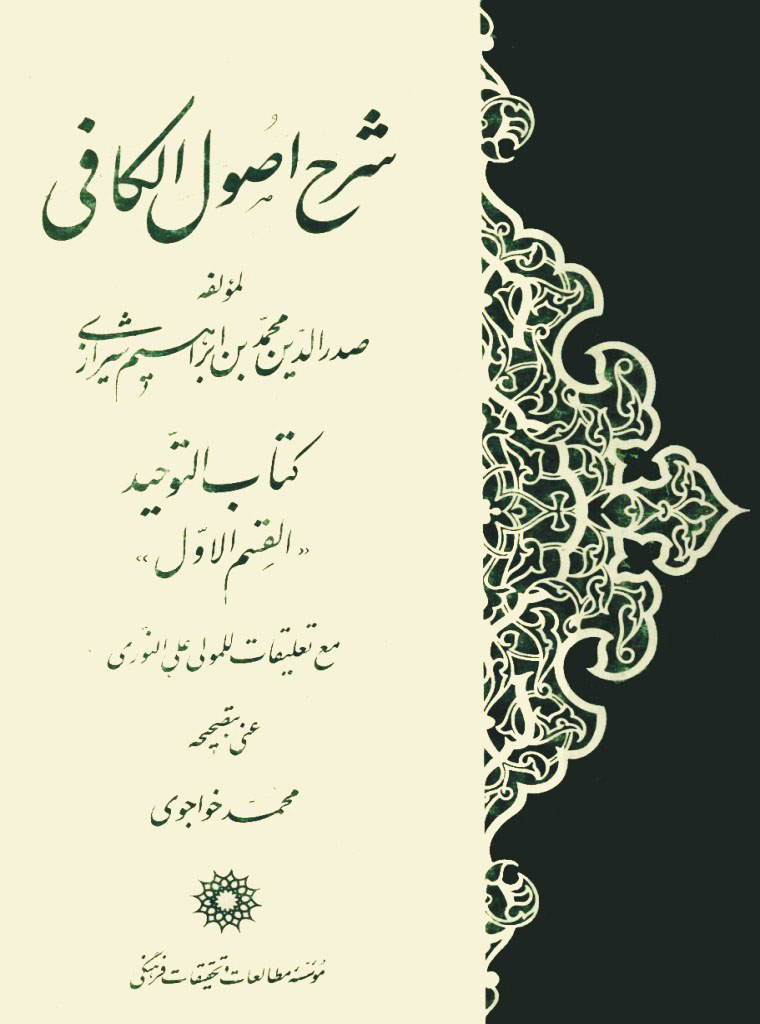 شرح اُصول الكافى
لمؤلفه
صدرالدّین محمّد بن ابراهیم شیرازی
كتاب التّوحيد
«القِسم الاوّل»
مع تعليقات للمولى على النّورى
عنى بتصحيحه
محمّد خواجوى
مؤسّسه مطالعات و تحقیقات فرهنگی